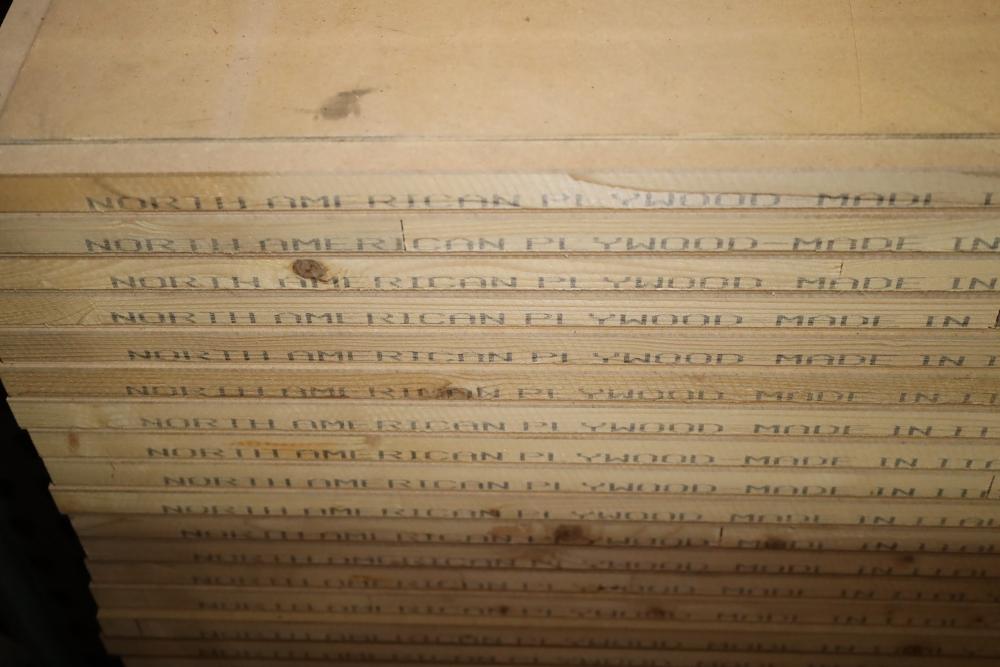 NORTH AMERICAN PLYWOOD MADE
NORTH AMERICAN PLYWOOD-MADE IN
NORTH AMERICAN PLYWOOD MADE IN
NORTH AMERICAN PLYWOOD MADE IN
NORTH AMERICAN PLYWOOD MADE IN
NORTH AMERICAN PLYWOOD MADE IN
NORTH AMERICAN PLYWOOD MADE IN
NORTH AMERICAN PLYWOOD MADE IN
NORTH AMERICAN PLYWOOD MADE IN
NORTH AMERICAN PLYWOOD MADE IN
NORTH AMERICAN PLYWOOD MADE IN
NORTH AMERICAN PLYWOOD MADE IN
NORTH AMERICAN PLYWOOD MADE IN
NORTH AMERICAN PLYWOOD MADE IN
NORTH AMERICAN PLYWOOD MADE IN
NORTH AMERICAN PLYWOOD MADE IN